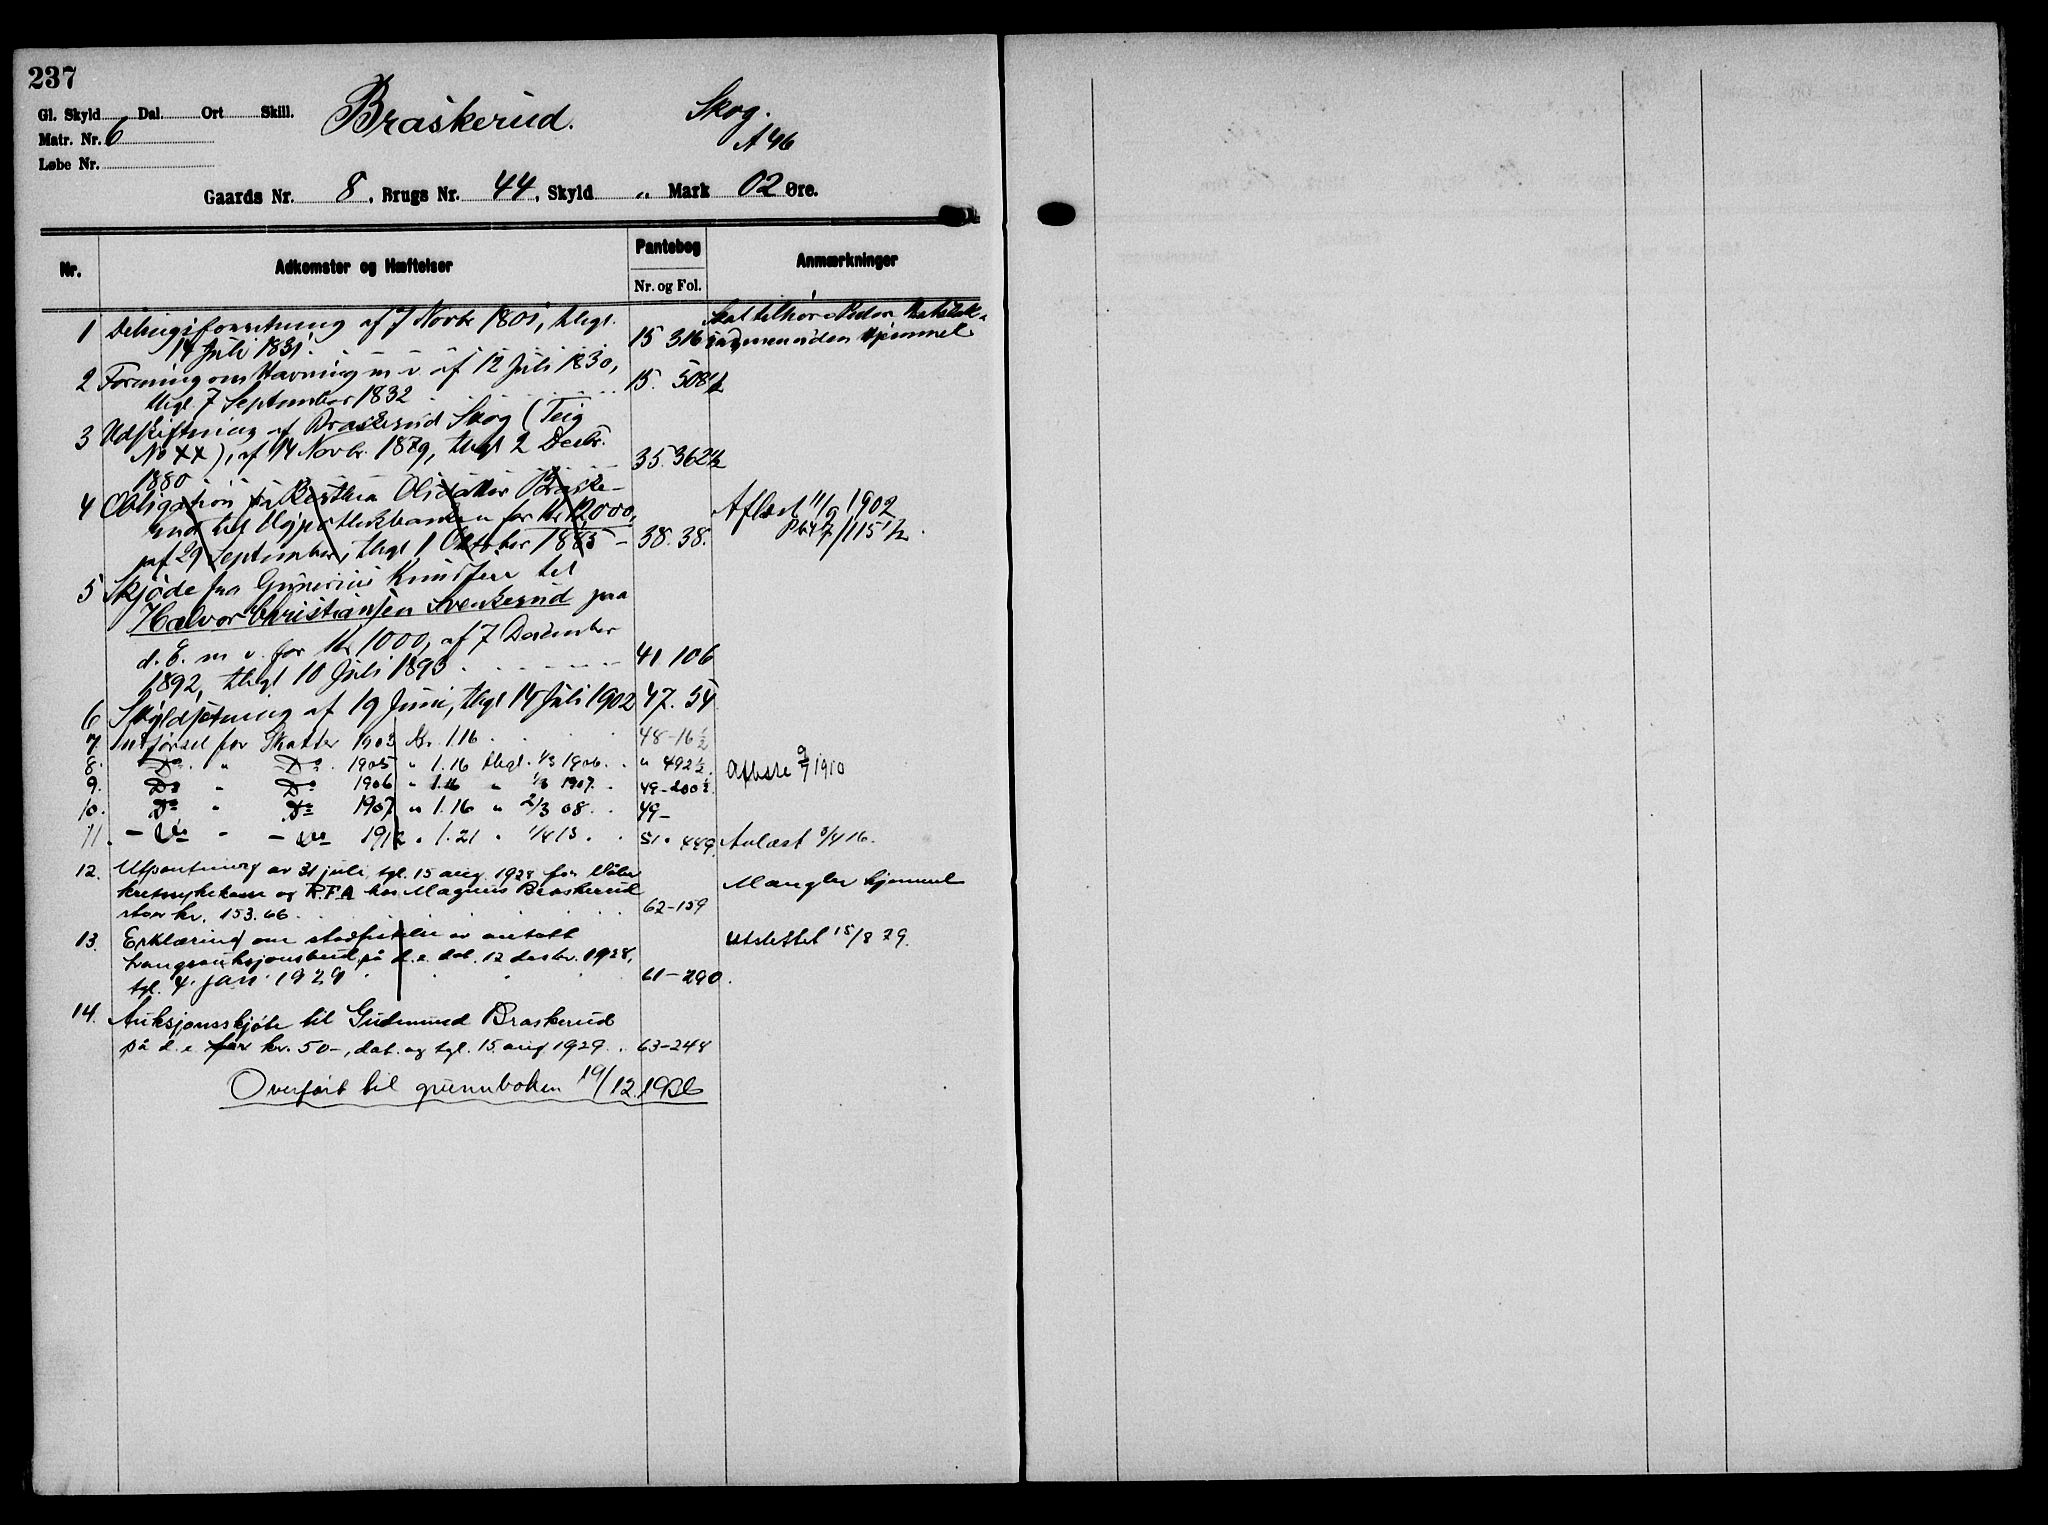 237
Gl. Skyld Dal. Ort Skill.
Matr. Nr. 6
Løbe Nr.
Braskerud. Skog.
A 46
Gaards Nr. 8, Brugs Nr. 44, Skyld " Mark 02 Øre.
Nr. Adkomster og Hæftelser Pantebog Anmærkninger
Nr. og Fol.
1 Delingsforretning af 7 Novbr 1801, thgl. Skal tilhøre Peder
14 Juli 1831. 15 316 uden Hjemmel
2 Forening om Havning m v af 12 Juli 1830,
thgl. 7 September 1832 15. 508½
3 Udskiftning af Braskerud Skog (Teig
No XX), af 14 Novbr. 1879, thgl 2 Decbr.
1880 35. 362½
4 Obligation fra Berthea Olsdatter Braske-
rud til Hypothekbanken for Kr 12,000, Aflæst 11/9 1902
af 29 September, thgl 1 Oktober 1885 - 38. 38. Pb 47/115½.
5 Skjøde fra Gunerius Knudsen til
Halvor Christiansen Svenkerud paa
d. E. m v. for Kr 1000, af 7 December
1892, thgl 10 Juli 1893 41 106
6 Skyldsetning af 19 Juni, thgl 14 Juli 1902 47. 54
7. Utførsel for Skatter 1903 Kr. 1.16 48-16½
8. Do. " Do. 1905 " 1.16 thgl. 1/3 1906. " 492½. Aflæste 9/7 1910
9. Do " Do 1906 " 1.16 " 1/3 1907. 49-200½
10. Do " Do 1907 " 1.16 " 2/3 08. 49-
11. - Do - " - Do 1912 " 1.21 " 1/4 13. 51. 449. Avlæst 3/4 16.
12. Utpantning av 31 juli, tgl. 15 aug. 1928 for Våler
kretssykekasse og R.F.A. hos Magnus Braskerud Mangler hjemmel
stor kr. 153.66 62-159
13. Erklæring om stadfestelse av antatt Utslettet 15/8 29.
tvangsauksjonsbud på d. e. dat. 12 desbr. 1928,
tgl. 4. jan. 1929 61-290.
14. Auksjonsskjøte til Gudmund Braskerud
på d. e. for kr. 50-, dat. og tgl. 15 aug 1929. 63-248
Overført til grunnboken 19/12.1936